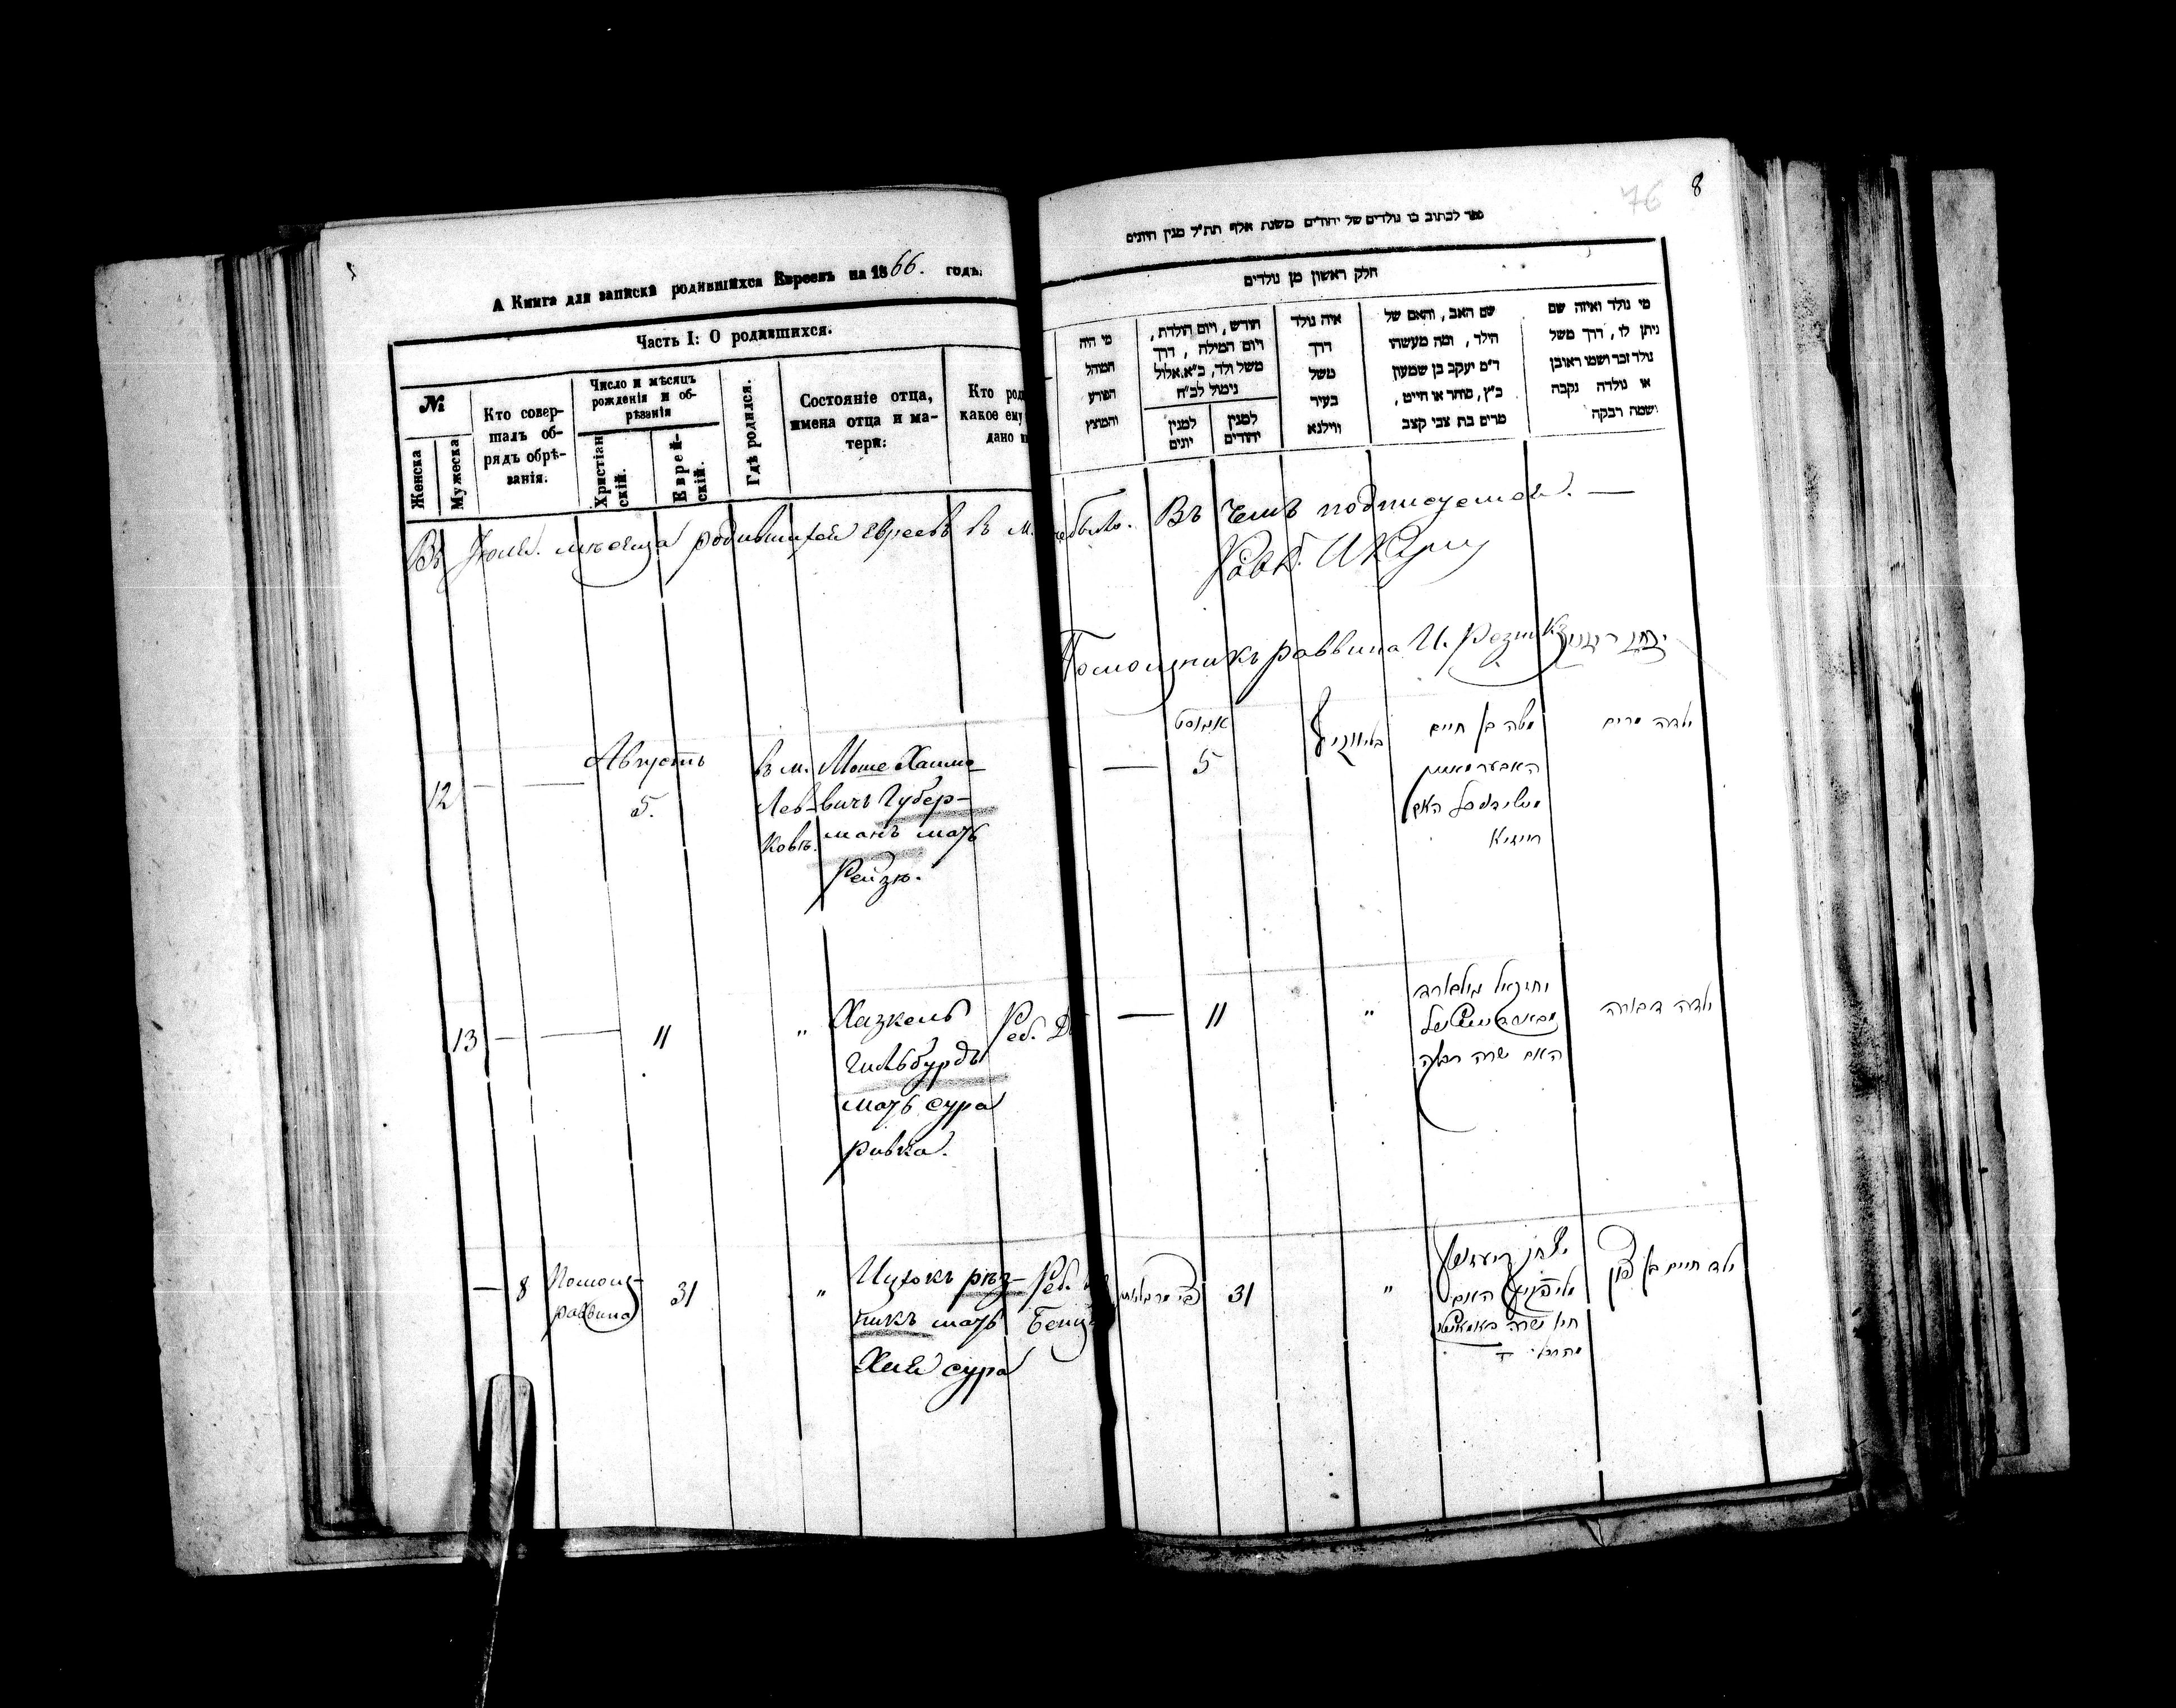 А Книга для записки родившихся Евреевъ на 1866. годъ.
Часть I: О родившихся.
№
Женска
Мужеска
Кто совер-
шалъ об-
рядъ обрѣ-
занія.
Число и мѣсяцъ
рожденія и об-
рѣзанія
Христіан
скій.
Еврей-
скій.
Гдѣ родился.
Состояніе отца,
имена отца и ма-
тери:
Кто род
какое ему
дано и
Въ Іюлѣ мѣсяца родившихся Евреевъ въ м.
12 — —
Августъ
5.
въ м.
Лев-
ковѣ.
Моше Хаимо-
вичъ Губер-
манъ мать
Рейзя.
13 — — 11 "
Хазкель
Гильбурдъ
мать сура
ривка.
Реб.
— 8
Помощ-
раввина
31 "
Ицхокъ рѣз-
никъ мать
Хая сура
Реб.
Бенц
76 8
ספר לכתוב בו נולדים של יהודים משנת אלף תת"ל מנין היונים
חלק ראשון מן נולדים
מי נולד ואיזה שם
ניתן לו, דרך משל
נולד זכר ושמו ראובן
או נולדה נקבה
ושמה רבקה
שם האב, והאם של
הילד, ומה מעשהו
ד"מ יעקב בן שמעון
כ"ץ, סוחר או חייט,
מרים בת צבי קצב
איה נולד
דרך
משל
בעיר
ווילנא
חודש, ויום הולדת,
ויום המילה, דרך
משל ולד, כ"א.אלול
נימול לכ"ח
למנין
יהודים
למנין
יונים
מי היה
המוהל
הפורע
והמוצץ
небыло. Въ чемъ подписуемся. —
Равв.
Помощникъ раввина И. Резникъ
ילדה מרים
משה בן חיים
האם
5
—
אבגוסט
ילדה דבורה
יחזקאל
האם שרה רבקה
"
11
—
ילד חיים בן ציון
יצחק
האם
חיה שרה
"
31